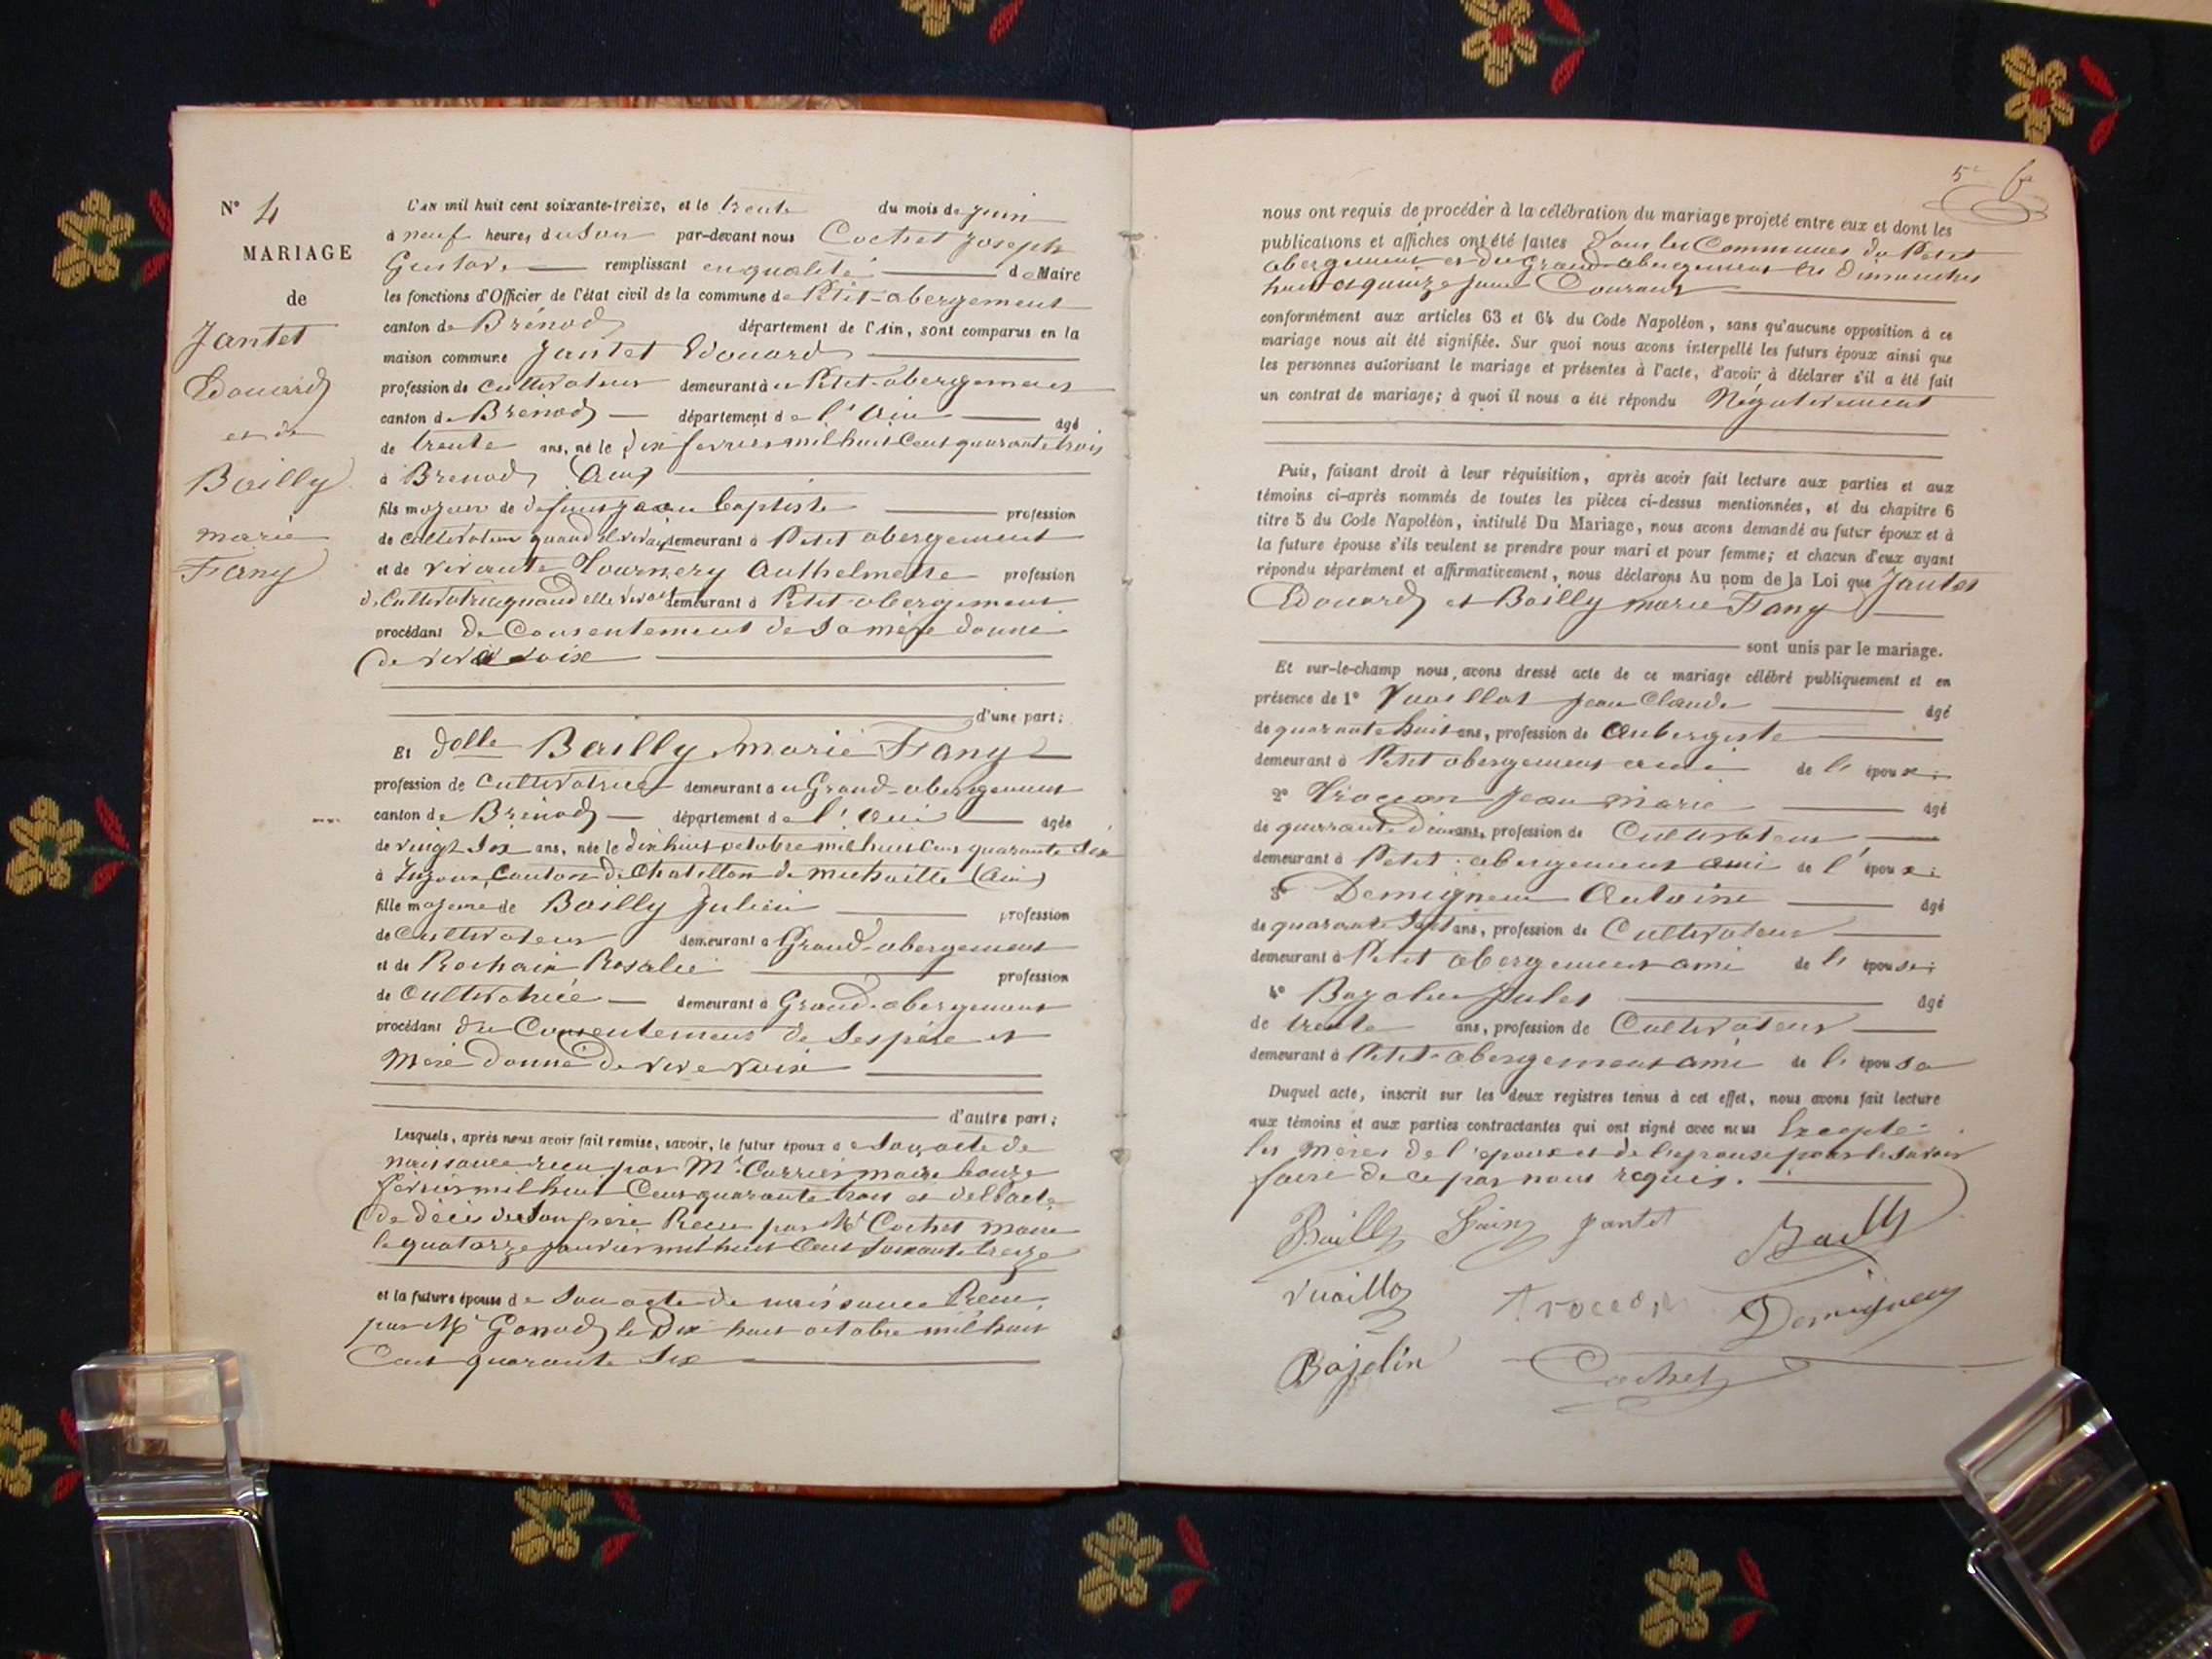 N° 4
MARIAGE
de
Jantet
Edouard
et de
Bailly
marie
Fany
L'AN mil huit cent soixante-treize, et le trente du mois de juin
à neuf heures du soir par-devant nous Cochet Joseph
Gustave remplissant en qualité de Maire
les fonctions d'Officier de l'état civil de la commune de Petit-abergement
canton de Brénod département de l'Ain, sont comparus en la
maison commune Jantet Edouard
profession de cultivateur demeurant à Petit-abergement
canton de Brénod département de l'Ain âgé
de trente ans, né le dix fevrier mil huit Cent quarante trois
à Brenod Ain
fils majeur de defunt jean baptiste profession
de cultivateur quand il vivait demeurant à Petit abergement
et de vivante Tournery Anthelmette profession
de Cultivatrice quand elle vivait demeurant à Petit-abergement
procédant de Consentement de sa mère donné
de vive voix
d'une part;
Et dlle Bailly marie Fany
profession de Cultivatrice demeurant à Grand-abergement
canton de Brénod département de l'Ain âgée
de vingt six ans, née le dix huit octobre mil huit Cent quarante six
à Injoux Canton de Chatillon de michaille (Ain)
fille majeure de Bailly Julien profession
de Cultivateur demeurant à Grand-abergement
et de Rochaix Rosalie profession
de Cultivatrice demeurant à Grand-abergement
procédant du Consentement de ses père et
Mère donné de vive voix
d'autre part;
Lesquels, après nous avoir fait remise, savoir, le futur époux de Son acte de
naissance recu par Mr Carrier maire
fevrier mil huit Cent quarante trois et de l'acte
de décès de Son père Recu par Mr Cochet maire
le quatorze janvier mil huit Cent soixante treize
et la future épouse de Son acte de naissance Recu
par Mr Gonod le Dix huit octobre mil huit
Cent quarante six
5e 6e
nous ont requis de procéder à la célébration du mariage projeté entre eux et dont les
publications et affiches ont été faites dans les Communes du Petit
abergement et du Grand-abergement les dimanches
huit et quinze juin Courant
conformément aux articles 63 et 64 du Code Napoléon, sans qu'aucune opposition à ce
mariage nous ait été signifiée. Sur quoi nous avons interpellé les futurs époux ainsi que
les personnes autorisant le mariage et présentes à l'acte, d'avoir à déclarer s'il a été fait
un contrat de mariage; à quoi il nous a été répondu Négativement
Puis, faisant droit à leur réquisition, après avoir fait lecture aux parties et aux
témoins ci-après nommés de toutes les pièces ci-dessus mentionnées, et du chapitre 6
titre 5 du Code Napoléon, intitulé Du Mariage, nous avons demandé au futur époux et à
la future épouse s'ils veulent se prendre pour mari et pour femme; et chacun d'eux ayant
répondu séparément et affirmativement, nous déclarons Au nom de la Loi que Jantet
Edouard et Bailly marie Fany
sont unis par le mariage.
Et sur-le-champ nous avons dressé acte de ce mariage célébré publiquement et en
présence de 1° Vuaillat Jean Claude âgé
de quarante huit ans, profession de Aubergiste
demeurant à Petit abergement ami de l'époux;
2° Trocon Jean Marie âgé
de quarante deux ans, profession de Cultivateur
demeurant à Petit-abergement ami de l'époux;
3° Demigneux Antoine âgé
de quarante sept ans, profession de Cultivateur
demeurant à Petit abergement ami de l'épouse;
4° Bozolin Jules âgé
de trente ans, profession de Cultivateur
demeurant à Petit-abergement ami de l'épouse
Duquel acte, inscrit sur les deux registres tenus à cet effet, nous avons fait lecture
aux témoins et aux parties contractantes qui ont signé avec nous Excepté
les mères de l'époux et de l'épouse pour le savoir
faire de ce par nous requis.
Bailly Fainy jantet Bailly
Vuaillat Trocon Demigneux
Bojelin Cochet